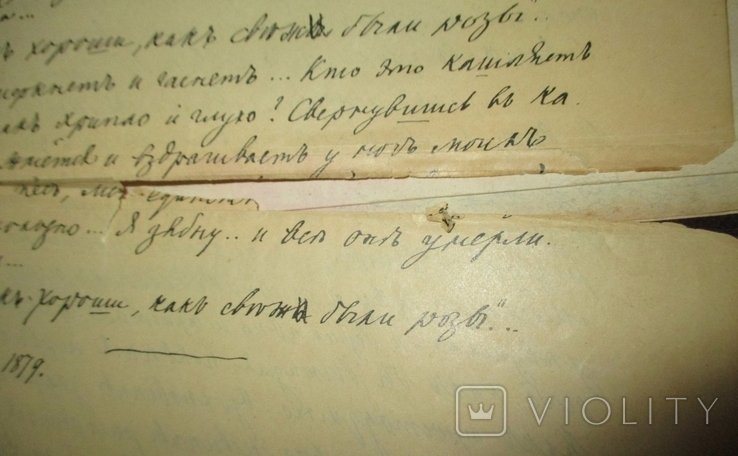 ...
ъ хороши, какъ свѣжи были розы"...
меркнетъ и гаснетъ... Кто это кашляетъ
такъ хрипло и глухо? Свернувшись въ ка
жмётся и вздрагиваетъ у ногъ моихъ
пёсъ, мой единств
холодно... Я зябну.. и всѣ онѣ умерли.
...
къ хороши, какъ свѣжи были розы"...
1879.
VIOLITY